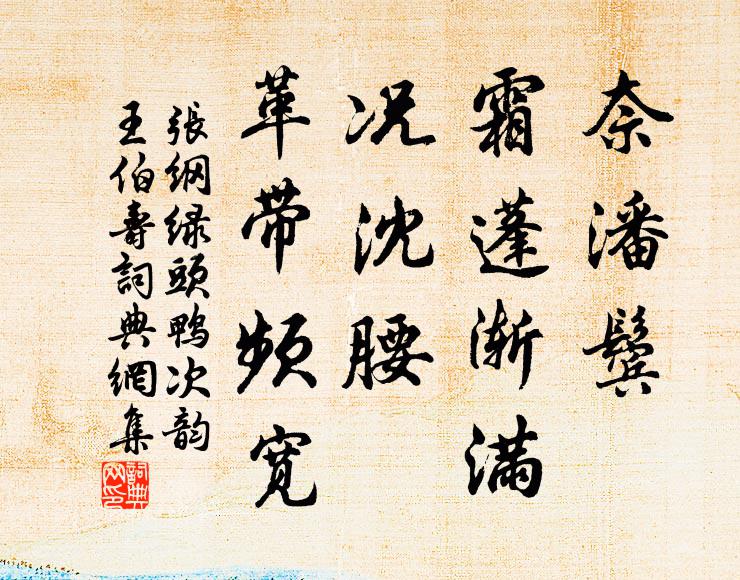 奈潘鬓
霜蓬渐满
况沈腰
革带频宽
張纲绿頭鴨次韵
王伯壽詞典網集
詞典网印